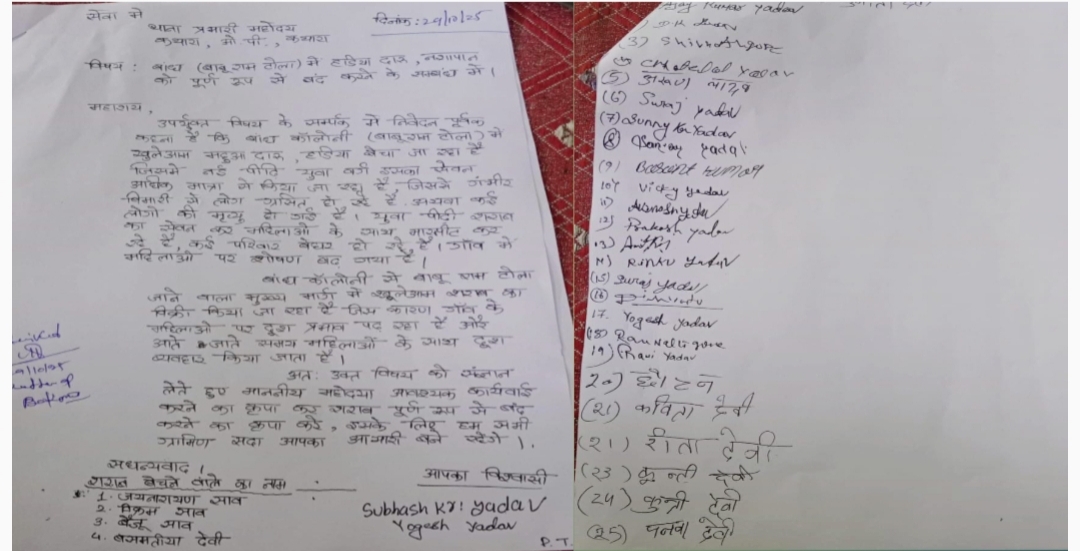 सेवा में
दिनांक: 29/10/25
थाना प्रभारी महोदय
कथारा, ओ.पी., कथारा
विषय : बांध (बाबू राम टोला) में हडिया दारू, नशापान
को पुर्ण रूप से बंद करने के सम्बंध में।
महाशय,
उपर्युक्त विषय के सम्पर्क में निवेदन पूर्वक
कहना है कि बांध कॉलोनी (बाबूराम टोला) में
खुलेआम महुआ दारू, हडिया बेचा जा रहा है
जिसमें नई पीढि युवा वर्ग इसका सेवन
अधिक मात्रा में किया जा रहा है, जिससे गंभीर
बिमारी से लोग ग्रसित हो रहे हैं अथवा कई
लोगों की मृत्यु हो गई है। युवा पीढी शराब
का सेवन कर महिलाओं के साथ मारपीट कर
रहे हैं, कई परिवार बेघर हो रहे है। गाँव में
महिलाओं पर शोषण बढ़ गया है।
बांध कॉलोनी से बाबू राम टोला
जाने वाला मुख्य मार्ग में खुलेआम शराब का
बिक्री किया जा रहा है जिस कारण गाँव के
महिलाओं पर दूरा प्रभाव पद रहा है और
आते जाते समय महिलाओं के साथ दूरा
व्यवहार किया जाता है।
अत: उक्त विषय को संज्ञान
लेते हुए माननीय महोदया आवश्यक कार्यवाई
करने का कृपा कर शराब पूर्ण रूप से बंद
करने का कृपा करे, इसके लिए हम सभी
ग्रामिण सदा आपका आभारी बने रहेंगे।
सधन्यवाद।
शराब बेचने वाले का नाम :
1. जयनारायण साव
2. विक्रम साव
3. बैजू साव
4. बसमतीया देवी
आपका विश्वासी
Subhash Kr. Yadav
Yogesh Yadav
P.T.
Kumar Yadav
(3)
(4) Yadav
(5)
(6) Suraj Yadav
(7) Sunny Kr Yadav
(8) Sanjay Yadav
(9) Basant Kumar
10) Vicky Yadav
11)
12) Prakash Yadav
13)
14) Rinku Yadav
(15) Suraj Yadav
(16)
17. Yogesh Yadav
(18)
19) Ravi Yadav
20)
(21) कविता देवी
(21) रीता देवी
(23) कुन्ती देवी
(24) कुन्ती देवी
(25) पनवा देवी